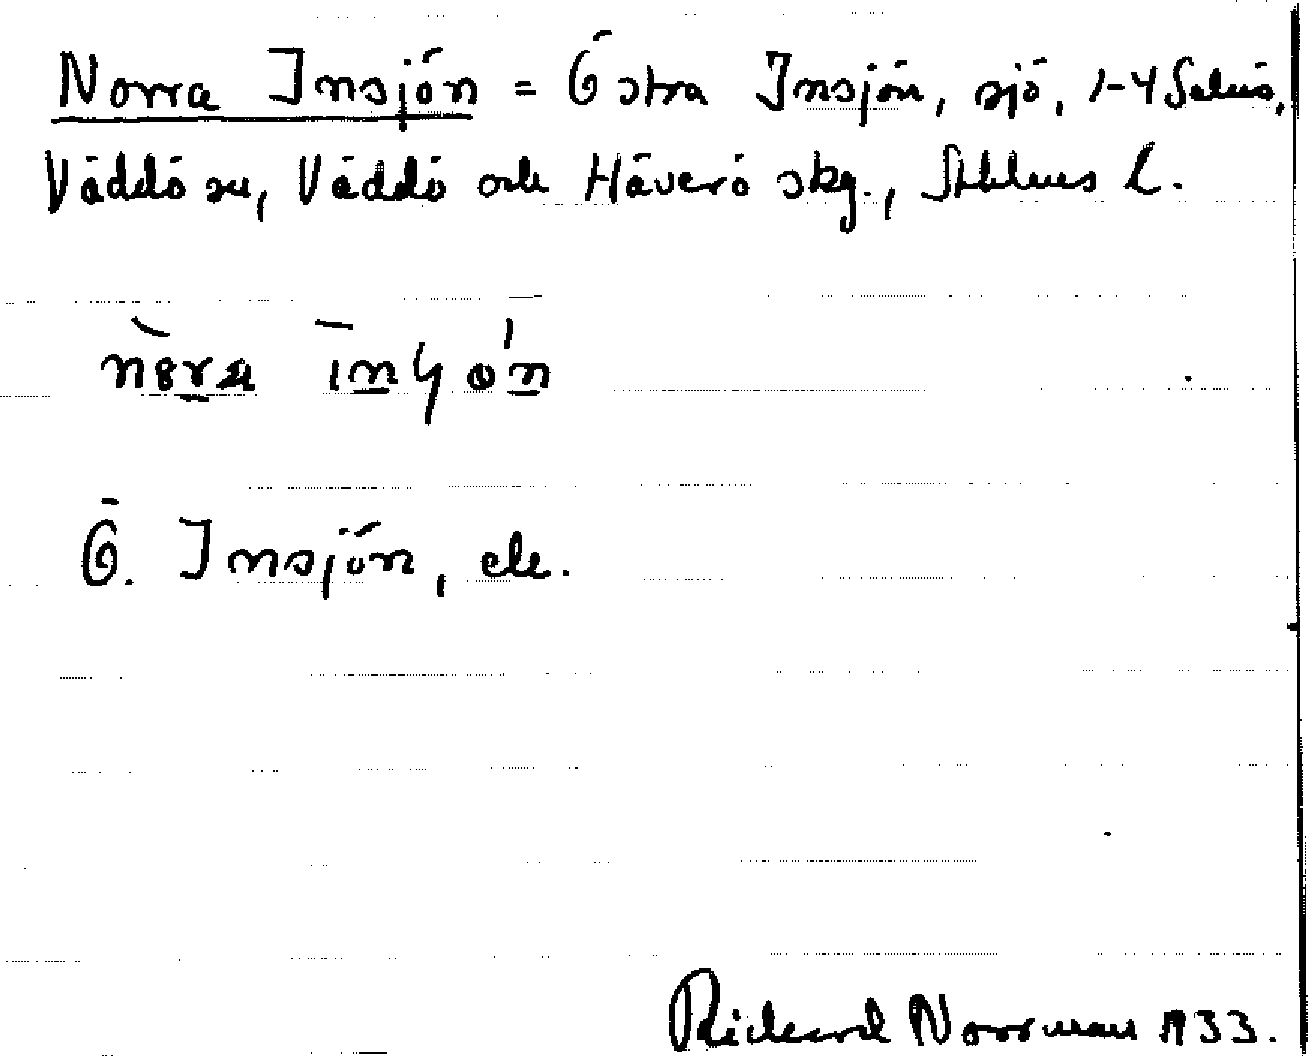 Norra Insjön = Östra Insjön, sjö, 1-4 Senneby,
Väddö sn, Väddö och Häverö skg., Sthlms l.
Ö. Insjön, ek.
Rickard Norrman 1933.